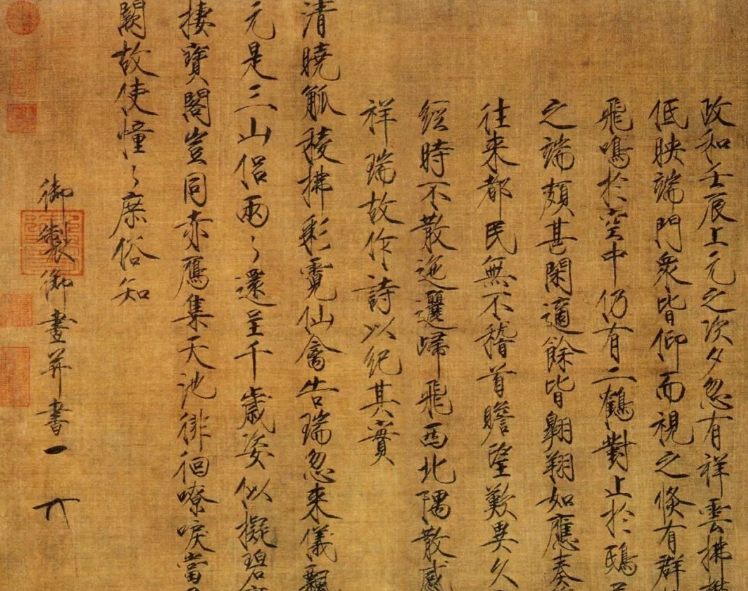 政和壬辰上元之次夕忽有祥雲拂
低映端門衆皆仰而視之倏有群
飛鳴於空中仍有二鶴對止於鴟
之端頗甚閑適餘皆翺翔如應奏
往來都民無不稽首瞻望歎異久
經時不散迤邐歸飛西北隅散感
祥瑞故作詩以紀其實
清曉觚稜拂彩霓仙禽告瑞忽來儀飄
元是三山侶兩〻還呈千歲姿似擬碧
捿寶閣豈同赤鴈集天池徘徊嘹唳當
闕故使憧〻庶俗知
御製御畫并書